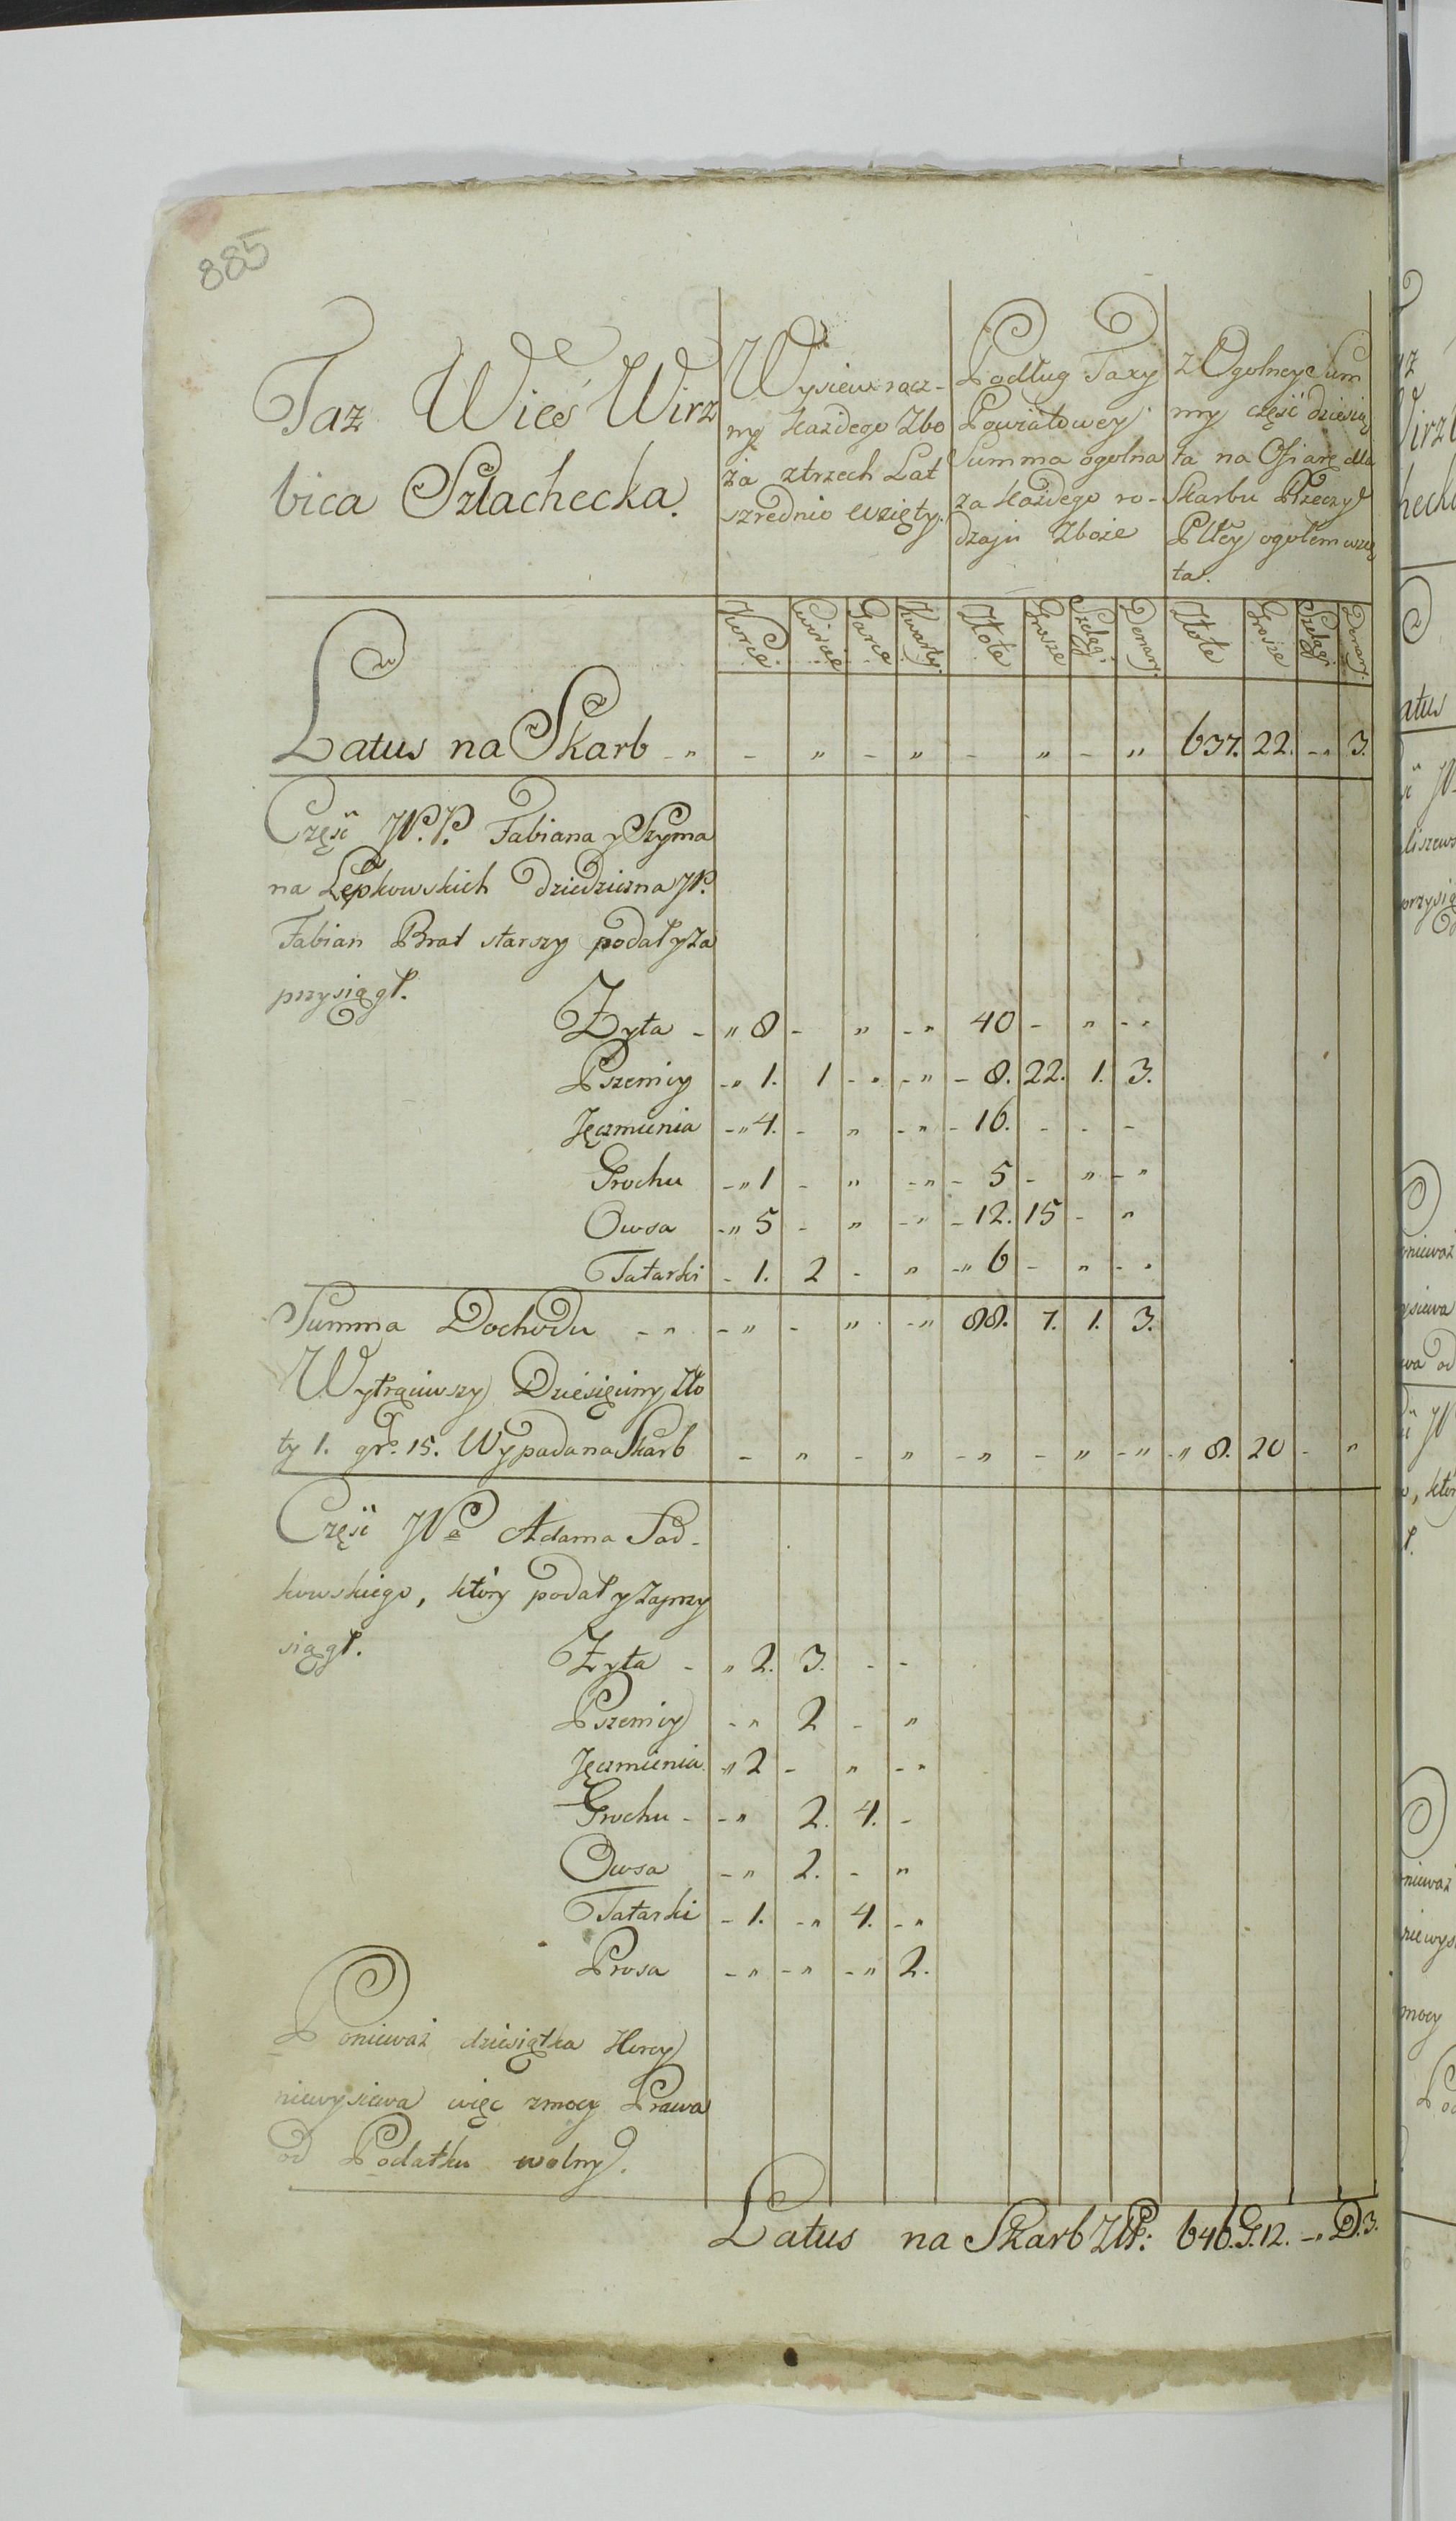 885
Taż Wieś Wirz
bica Szlachecka.
Wysiew rącz-
ny każdego Zbo
ża ztrzech Lat
szrednio wzięty.
Podług Taxy
Powiatowey
Summa ogolna
za każdego ro-
dzaju Zboże
z Ogolney Sum
my część dziesią
ta na Ofiarę dla
Skarbu Rzeczy
Pltey ogołem wzię
ta.
Korce Cwircie Garce Kwarty. Złote Grosze Szelągi Denary. Złote Grosze Szelągi Denary.
Latus na Skarb - „ - „ - „ - „ - „ 637. 22. - „ 3.
Część JP. P. Fabiana y Szyma
na Lępkowskich Dziedziczna JP.
Fabian Brat starszy podał y za
przysiągł.
Żyta - „ 8 - „ - „ 40 - „ - „
Pszenicy - „ 1. 1 - „ - „ - 8. 22. 1. 3.
Jęczmienia - „ 4. - „ - „ - 16. - - -
Grochu - „ 1 - „ - „ - 5 - „ - „
Owsa - „ 5 - „ - „ - 12. 15 - „
Tatarki - 1. 2 - „ - „ 6 - „ - „
Summa Dochodu - „ - „ - „ - „ 88. 7. 1. 3.
Wytrąciwszy Dziesięciny Zło
ty 1. gr. 15. Wypada na Skarb - „ - „ - „ - „ - „ - „ 8. 20 - „
Część JPa Adama Sad-
kowskiego, który podał y zaprzy
siągł.
Żyta - „ 2. 3. - -
Pszenicy - „ 2 - „
Jęczmienia - „ 2 - „ - „
Grochu - - „ 2. 4. -
Owsa - „ 2. - „
Tatarki - 1. - „ 4. - „
Prosa - „ - „ - „ 2.
Ponieważ dziesiątka Korcy
niewysiewa więc zmocy Prawa
od Podatku wolny.
Latus na Skarb ZłP: 646. G. 12. - „ D. 3.